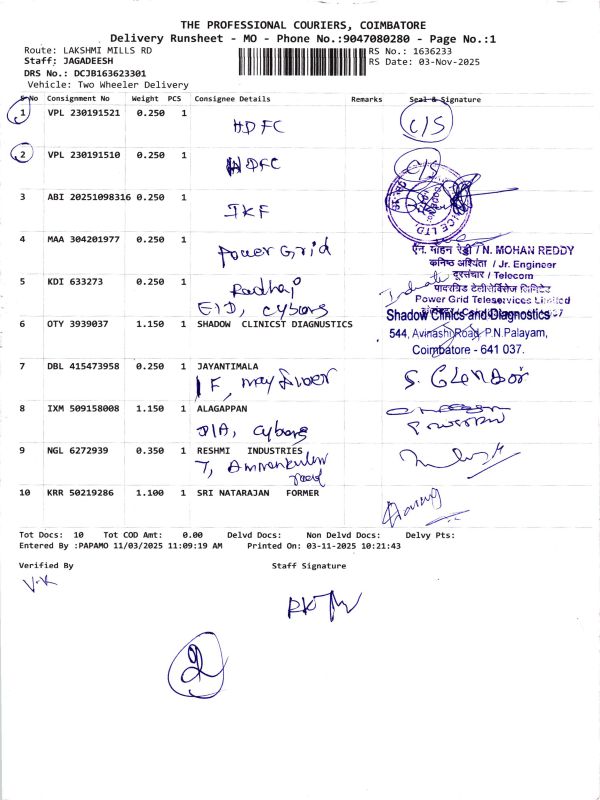 THE PROFESSIONAL COURIERS, COIMBATORE
Delivery Runsheet - MO - Phone No.:9047080280 - Page No.:1
Route: LAKSHMI MILLS RD RS No.: 1636233
Staff: JAGADEESH RS Date: 03-Nov-2025
DRS No.: DCJB163623301
Vehicle: Two Wheeler Delivery
S No Consignment No Weight PCS Consignee Details Remarks Seal & Signature
1 VPL 230191521 0.250 1 HDFC C/S
2 VPL 230191510 0.250 1 HDFC C/S
3 ABI 20251098316 0.250 1 IKF
4 MAA 304201977 0.250 1 Power Grid
एन. मोहन रेड्डी / N. MOHAN REDDY
कनिष्ठ अभियंता / Jr. Engineer
दूरसंचार / Telecom
5 KDI 633273 0.250 1
पावरग्रिड टेलीसर्विसेज लिमिटेड
Power Grid Teleservices Limited
EID, Cyborg
6 OTY 3939037 1.150 1 SHADOW CLINICST DIAGNUSTICS
Shadow Clinics and Diagnostics
544, Avinashi Road, P.N.Palayam,
Coimbatore - 641 037.
7 DBL 415473958 0.250 1 JAYANTIMALA
1 F, Mayflower
8 IXM 509158008 1.150 1 ALAGAPPAN
Cyborg
9 NGL 6272939 0.350 1 RESHMI INDUSTRIES
7,
Road
10 KRR 50219286 1.100 1 SRI NATARAJAN FORMER
Tot Docs: 10 Tot COD Amt: 0.00 Delvd Docs: Non Delvd Docs: Delvy Pts:
Entered By :PAPAMO 11/03/2025 11:09:19 AM Printed On: 03-11-2025 10:21:43
Verified By Staff Signature
V.K
2